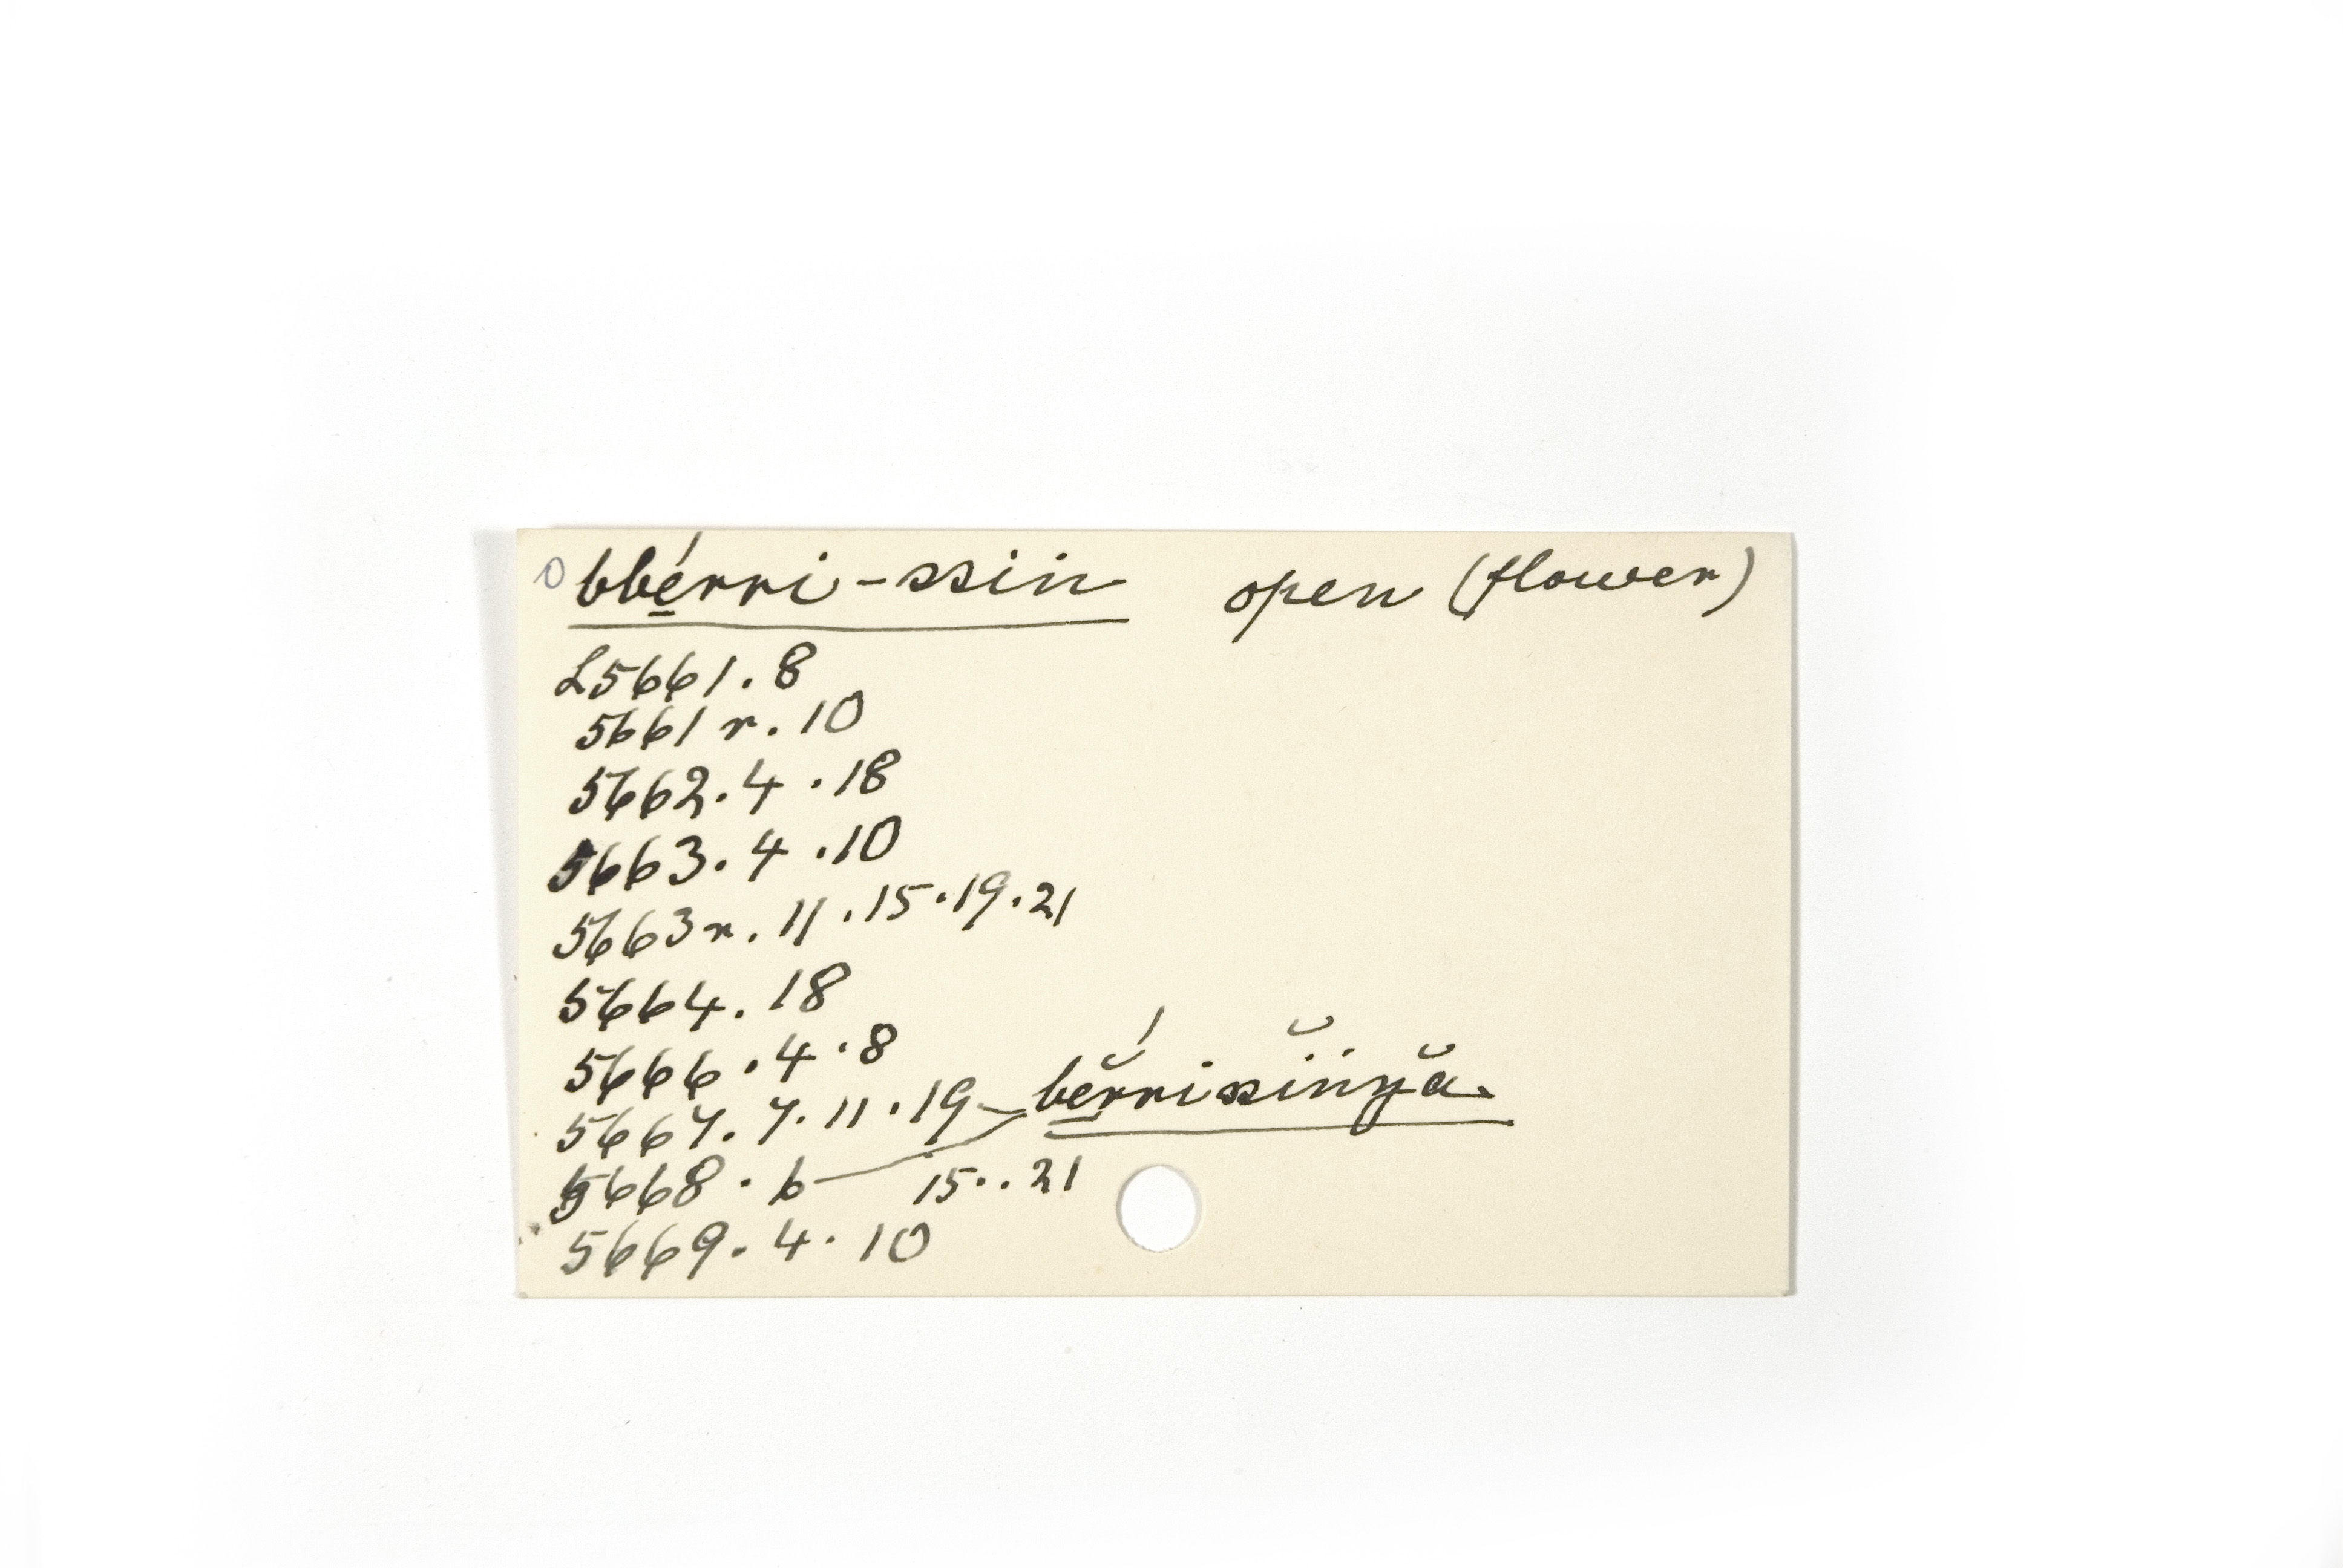 bbé̱rri-ssin open (flower)
L5661.8
5661r.10
5662.4.18
5663.4.10
5663r.11.15.19.21
5664.18
5666.4.8
5667.7.11.19 bĕ̱́rrisĭnyă
5668.6 15..21
5669.4.10